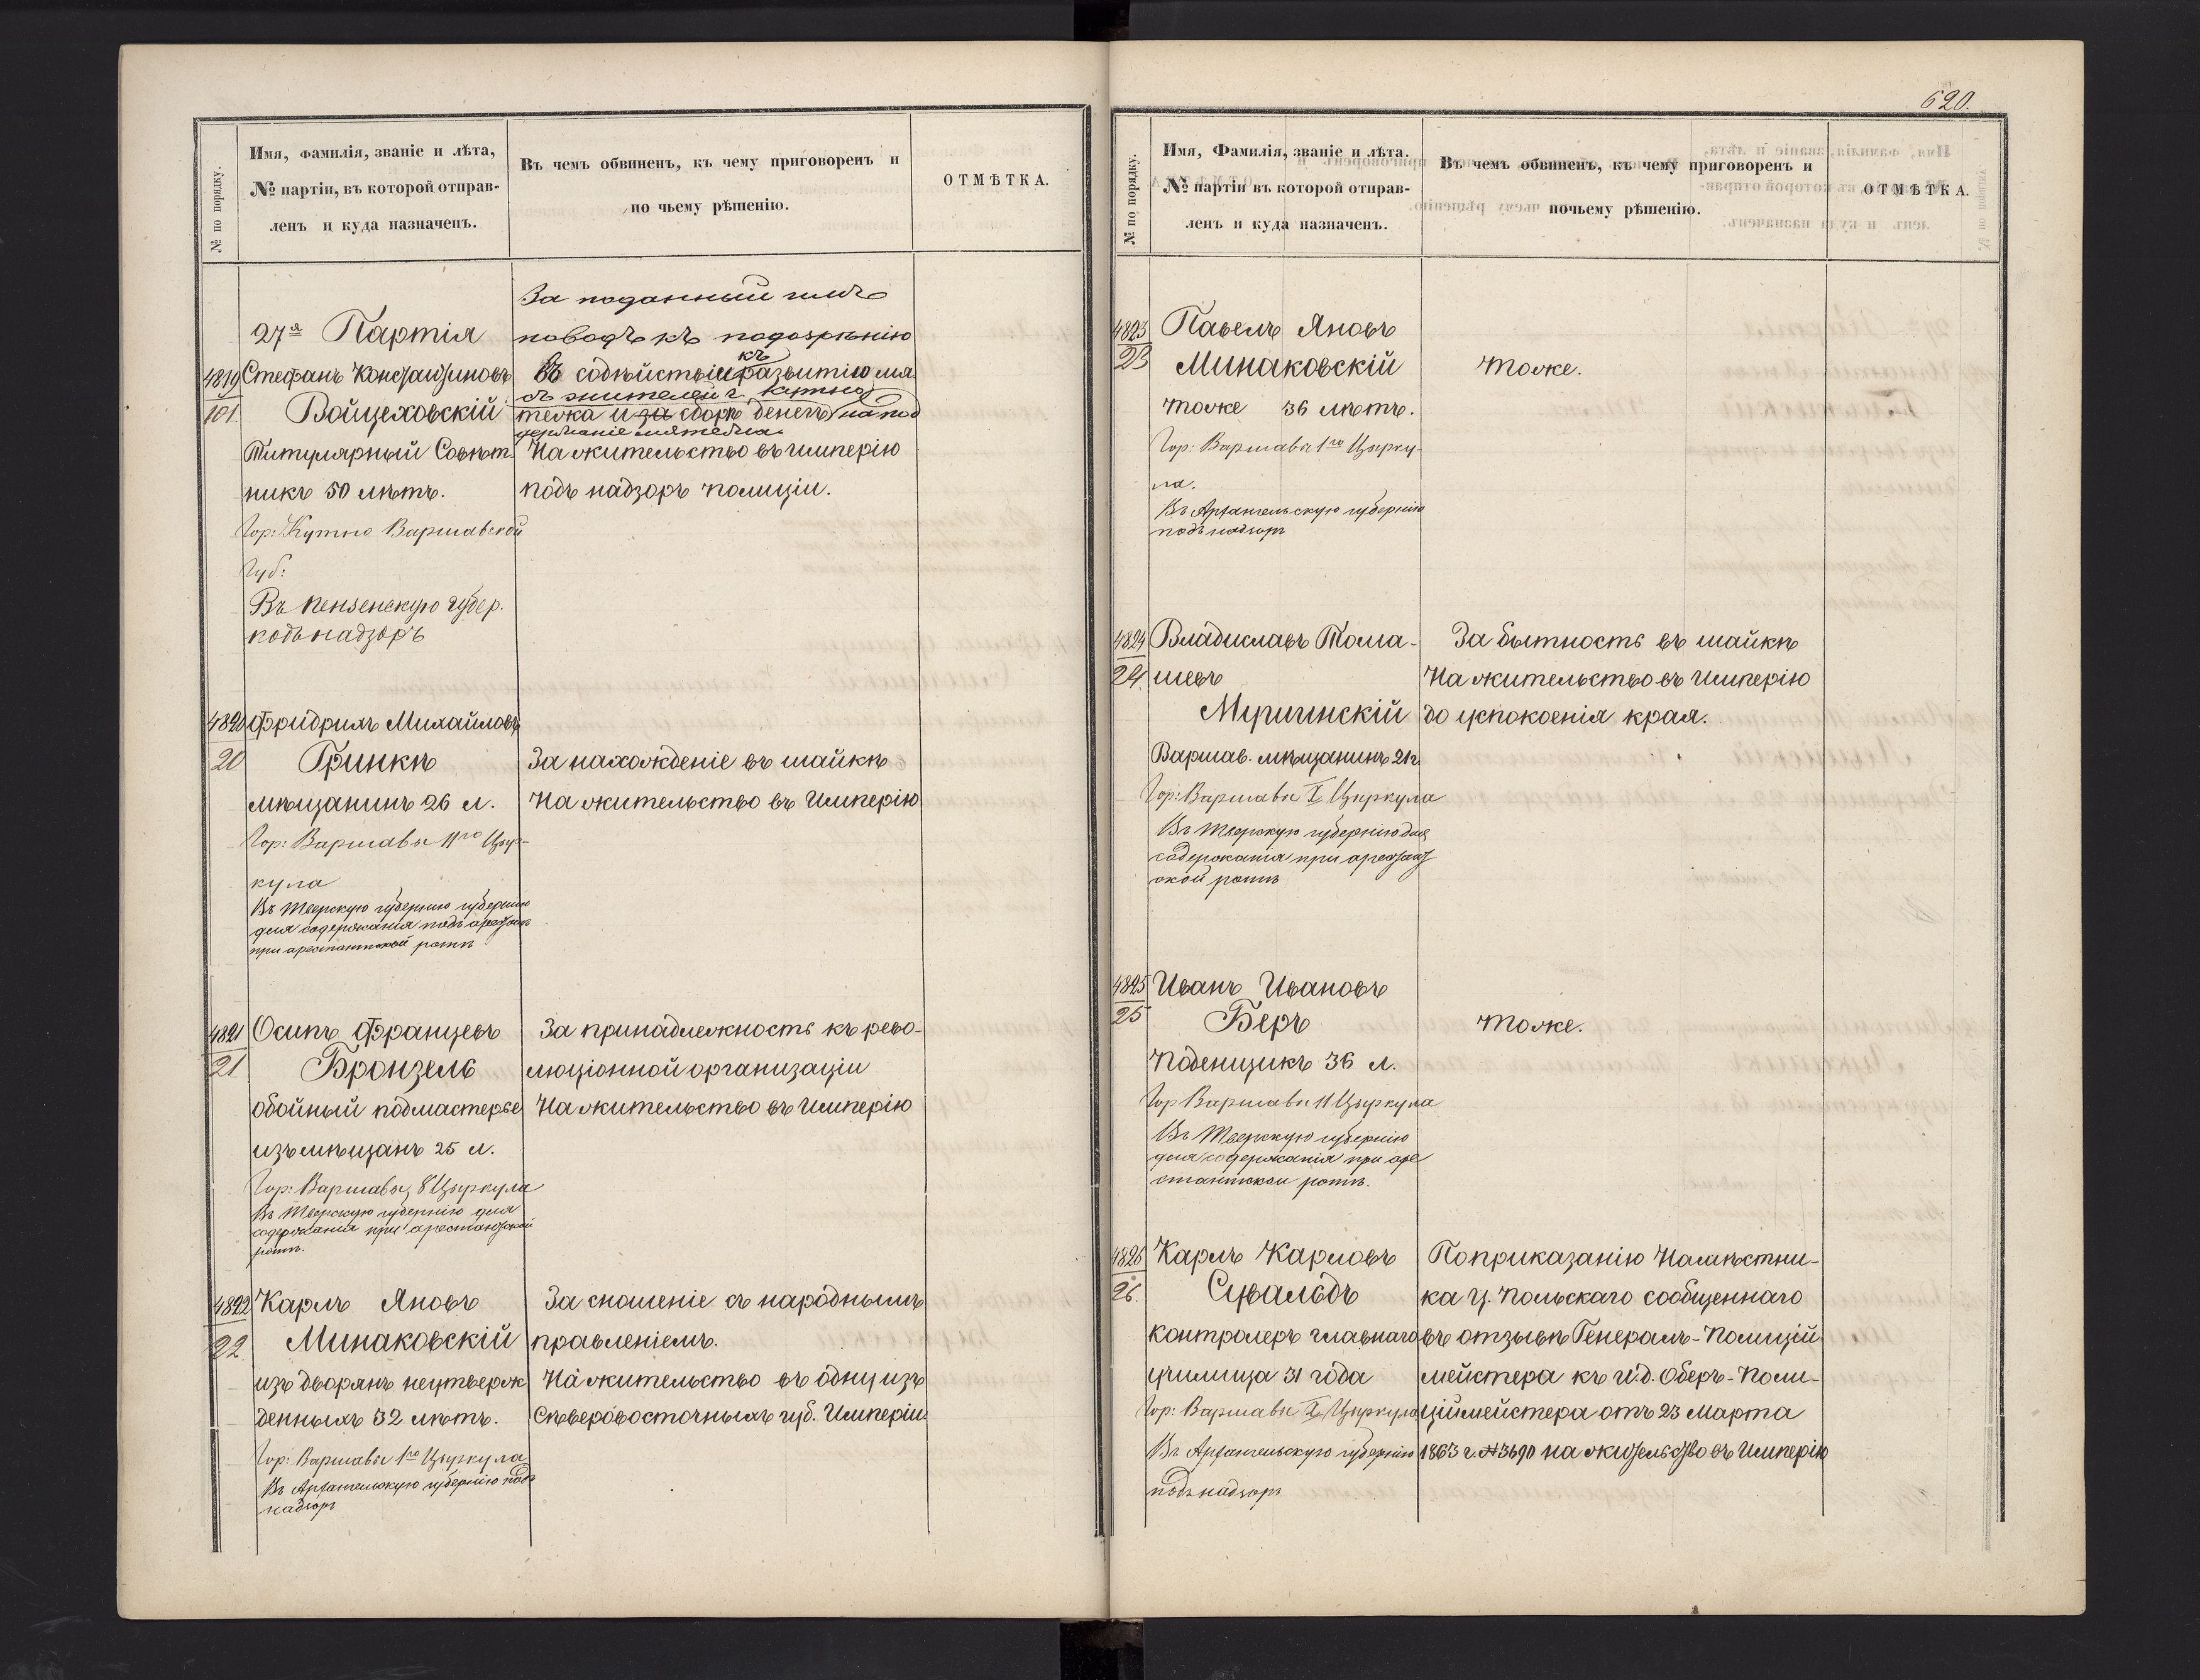 № по порядку.
Имя, фамилія, званіе и лѣта,
№ партіи, въ которой отправ-
ленъ и куда назначенъ.
Въ чемъ обвиненъ, къ чему приговоренъ и
по чьему рѣшенію.
ОТМѢТКА.
27я Партія
4819
101
Стефанъ Константиновъ
Войцеховскій
Титулярный Совѣт
никъ 50 лѣтъ.
Гор: Кутно Варшавской
Губ:
Въ Пензенскую губер.
подъ надзоръ
За поданный имъ
поводъ къ подозрѣнію
въ содѣйствіи къ развитію мя
съ жителей г. Кутно
тежа и за сборъ денегъ на под
держаніе мятежа.
На жительство въ имперію
подъ надзоръ полиціи.
4820
20
Фридрихъ Михайловъ
Гринкъ
мѣщанинъ 26 л.
Гор: Варшавы 11го Цыр-
кула
Въ Тверскую губернію губернію
для содержанія подъ арестомъ
при арестантской ротѣ
За нахожденіе въ шайкѣ
На жительство въ Имперію
4821
21
Осипъ Францевъ
Бронзель
обойный подмастерье
изъ мѣщанъ 25 л.
Гор: Варшавы, 8 Цыркула
Въ Тверскую губернію для
содержанія при арестантской
ротѣ.
За принадлежность къ рево-
люціонной организаціи
На жительство въ Имперію
4822
22
Карлъ Яновъ
Минаковскій
изъ дворянъ неутверж
денныхъ 32 лѣтъ.
Гор: Варшавы 1го Цыркула
Въ Архангельскую губернію подъ
надзоръ
За сношеніе съ народнымъ
правленіемъ.
На жительство въ одну изъ
Сѣверовосточныхъ губ. Имперіи
620.
№ по порядку.
Имя, Фамилія, званіе и лѣта.
№ партіи въ которой отправ-
ленъ и куда назначенъ.
Въ чемъ обвиненъ, къ чему приговоренъ и
почьему рѣшенію.
ОТМѢТКА.
4823
23
Павелъ Яновъ
Минаковскій
тоже 36 лѣтъ.
Гор: Варшавы 1го Цырку-
ла.
Въ Архангельскую губернію
подъ надзоръ
тоже.
4824
24
Владиславъ Тома-
шевъ
Варшав. мѣщанинъ 21г.
Гор: Варшавы I Цыркула
Въ Тверскую губернію для
содержанія при арестант
ской ротѣ
За бытность въ шайкѣ
На жительство въ Имперію
до успокоенія края.
4825
25
Иванъ Ивановъ
Беръ
Поденщикъ 36 л.
Гор Варшавы 11 Цыркула
Въ Тверскую губернію
для содержанія при аре
стантской ротѣ.
тоже.
4826
26.
Карлъ Карловъ
контролеръ главнаго
училища 31 года
Гор: Варшавы X Цыркула
Въ Архангельскую губернію
подъ надзоръ
По приказанію Намѣстни-
ка Ц. Польскаго сообщеннаго
въ отзывѣ Генералъ-Полицій
мейстера къ и.д. Оберъ-Поли-
ціймейстера отъ 23 Марта
1863 г. №3690 на жительство въ Имперію